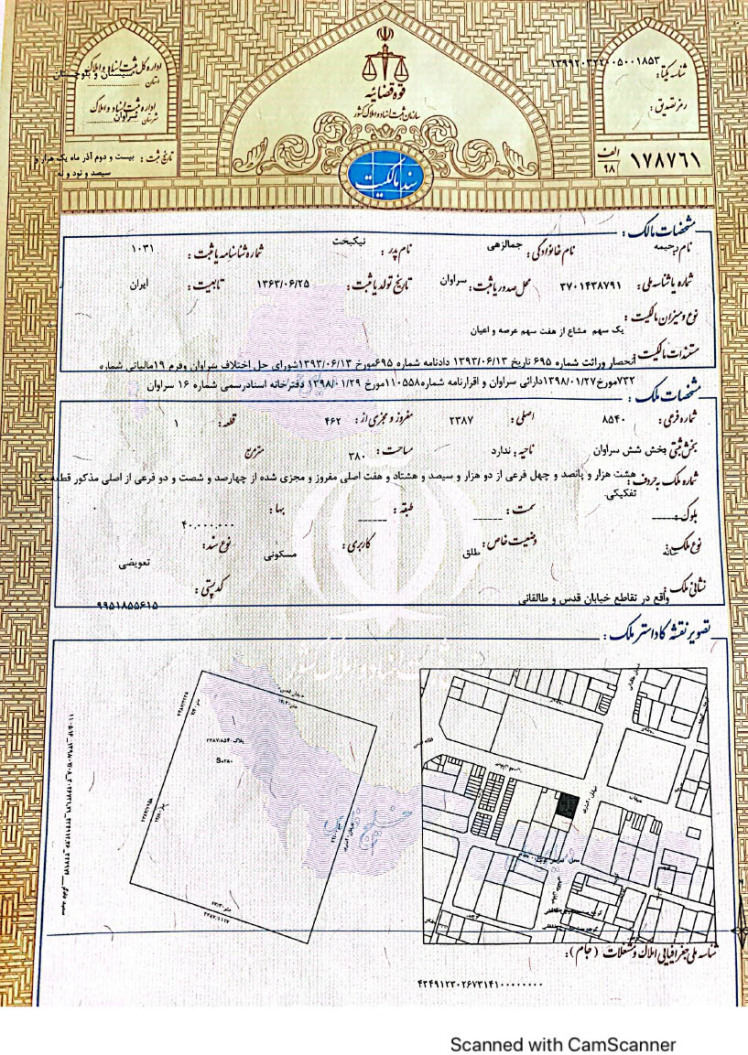 اداره کل ثبت اسناد و املاک
استان سیستان و بلوچستان
اداره ثبت اسناد و املاک
شهرستان سراوان
تاریخ ثبت : بیست و دوم آذر ماه یک هزار و
سیصد و نود و نه
قوه قضائیه
سازمان ثبت اسناد و املاک کشور
سند مالکیت
شناسه یکتا : ۱۳۹۹۲۰۳۲۲۰۰۵۰۰۱۸۵۳
رمز تصدیق :
۱۷۸۷۶۱ الف ۹۸
مشخصات مالک :
نام : رحیمه نام خانوادگی : جمالزهی نام پدر : نیکبخت شماره شناسنامه یا ثبت : ۱۰۳۱
شماره یا شناسه ملی : ۳۷۰۱۴۳۸۷۹۱ محل صدور یا ثبت : سراوان تاریخ تولد یا ثبت : ۱۳۶۳/۰۶/۲۵ تابعیت : ایران
نوع و میزان مالکیت :
یک سهم مشاع از هفت سهم عرصه و اعیان
مستندات مالکیت :
انحصار وراثت شماره ۶۹۵ تاریخ ۱۳۹۳/۰۶/۱۳ دادنامه شماره ۶۹۵مورخ ۱۳۹۳/۰۶/۱۳شورای حل اختلاف سراوان وفرم ۱۹مالیاتی شماره
۷۳۲مورخ۱۳۹۸/۰۱/۲۷دارائی سراوان و اقرارنامه شماره۱۱۰۵۵۸مورخ ۱۳۹۸/۰۱/۲۹ دفترخانه اسنادرسمی شماره ۱۶ سراوان
مشخصات ملک :
شماره فرعی : ۸۵۴۰ اصلی : ۲۳۸۷ مفروز و مجزی از : ۴۶۲ قطعه : ۱
بخش ثبتی بخش شش سراوان ناحیه : ندارد مساحت : ۳۸۰ مترمربع
شماره ملک به حروف : هشت هزار و پانصد و چهل فرعی از دو هزار و سیصد و هشتاد و هفت اصلی مفروز و مجزی شده از چهارصد و شصت و دو فرعی از اصلی مذکور قطعه یک
تفکیکی.
بلوک : سمت : طبقه : بها : ۴۰.۰۰۰.۰۰۰
نوع ملک : خانه وضعیت خاص : طلق کاربری : مسکونی نوع سند : تعویضی
نشانی ملک : واقع در تقاطع خیابان قدس و طالقانی کد پستی : ۹۹۵۱۸۵۵۶۱۵
تصویر نقشه کاداستر ملک :
شناسه ملی جغرافیایی املاک و مستغلات (جام) :
۴۲۴۹۱۲۳۰۲۶۷۳۱۴۱۰۰۰۰۰۰۰۰۰
Scanned with CamScanner